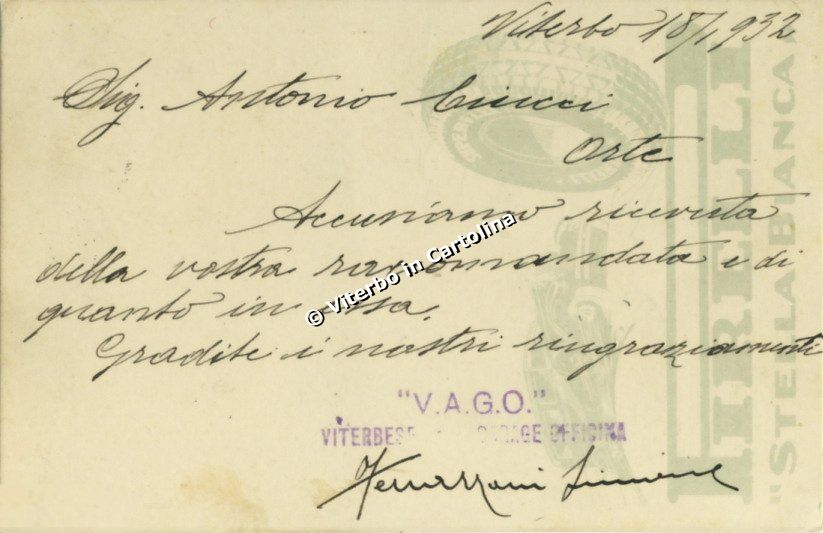 Viterbo 18/1 932
Sig. Antonio Ciucci
Orte
Accusiamo ricevuta
della vostra raccomandata e di
quanto in essa.
Gradite i nostri ringraziamenti
© Viterbo in Cartolina
"V.A.G.O."
VITERBESE GARAGE OFFICINA
PIRELLI
"STELLA BIANCA